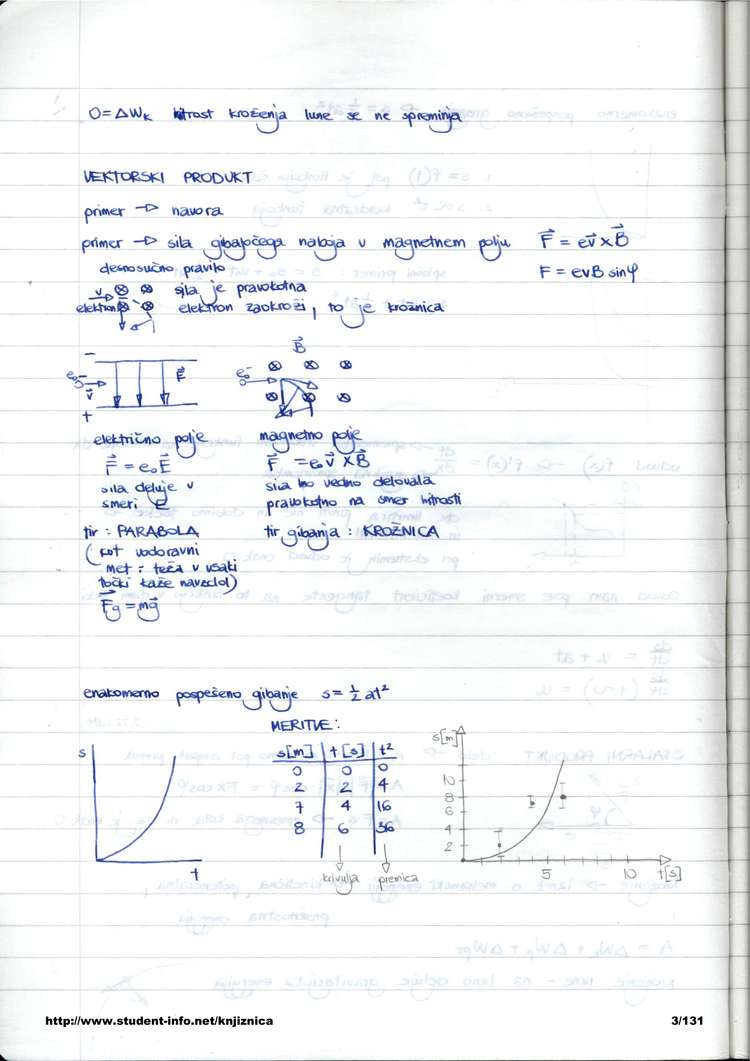 0 = ΔWk hitrost kroženja lune se ne spreminja
VEKTORSKI PRODUKT
primer → navora
primer → sila gibajočega naboja v magnetnem polju F⃗ = ev⃗ x B⃗
desnosučno pravilo F = evB sinφ
v ⊗ ⊗ sila je pravokotna
elektron ⊗ ⊗ elektron zaokroži, to je krožnica
B⃗
− e₀⁻ v⃗ E⃗ + e₀⁻ ⊗ ⊗ ⊗
⊗ ⊗ ⊗
električno polje magnetno polje
F⃗ = e₀E⃗ F⃗ = e₀v⃗ x B⃗
sila deluje v sila bo vedno delovala
smeri E pravokotno na smer hitrosti
tir : PARABOLA tir gibanja : KROŽNICA
(kot vodoravni
met : teža v vsaki
točki kaže navzdol)
F⃗g = mg⃗
enakomerno pospešeno gibanje s = ½ at²
MERITVE :
s t
s[m] t [s] t²
0 0 0
2 2 4
7 4 16
8 6 36
krivulja premica
s[m]
10
8
6
4
2
5 10 t[s]
http://www.student-info.net/knjiznica 3/131